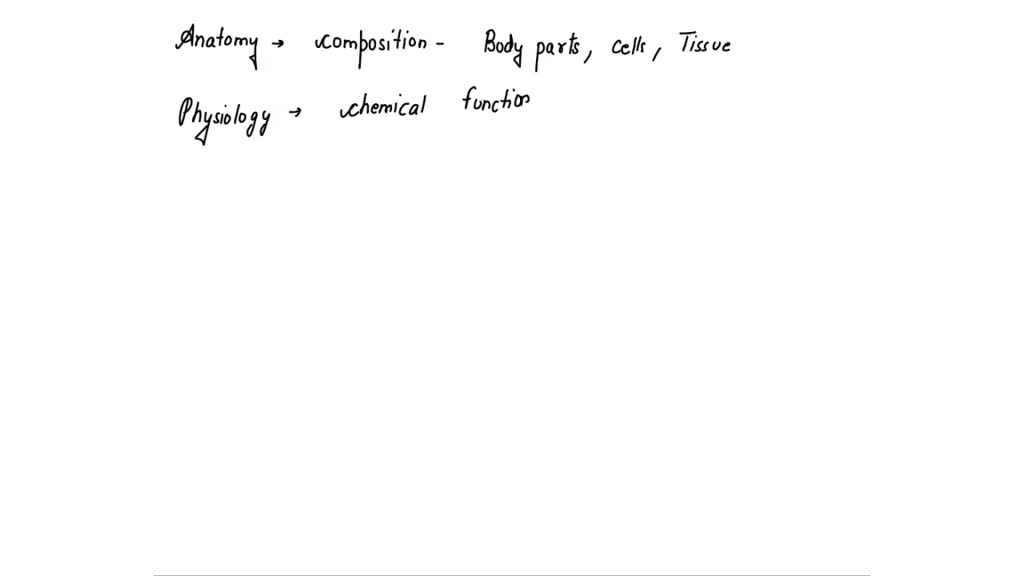 Anatomy → composition - Body parts, cells, Tissue
Physiology → chemical function